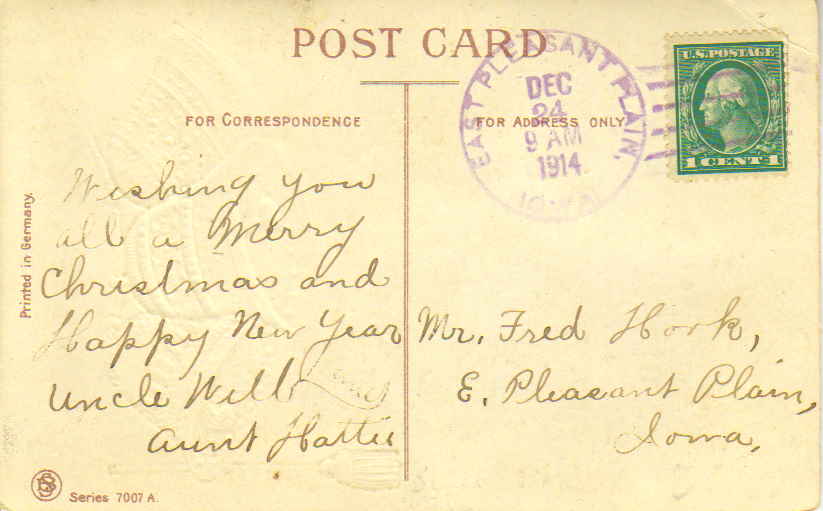 POST CARD
EAST PLEASANT PLAIN,
IOWA
DEC
24
9 AM
1914
U.S. POSTAGE
1 CENT 1
FOR CORRESPONDENCE
FOR ADDRESS ONLY
Printed in Germany.
Wishing you
all a Merry
Christmas and
Happy New Year
Uncle Will and
Aunt Hattie
Mr. Fred Hork,
E. Pleasant Plain,
Iowa,
Series 7007 A.